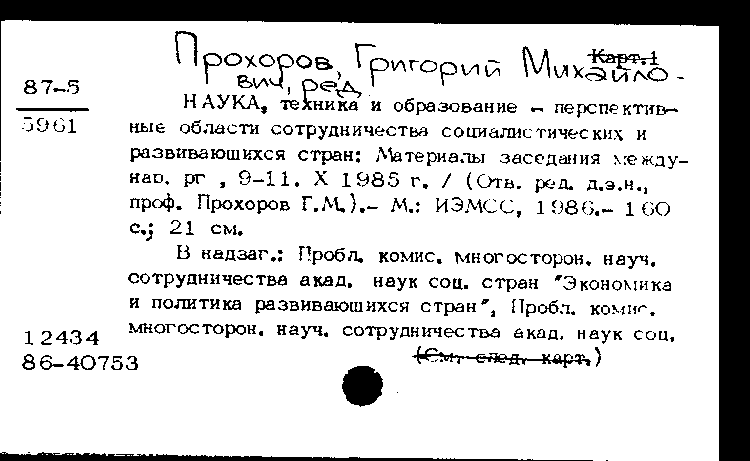 Прохоров, Григорий Михайло-
вич, ред.
Карт.1
87-5
5961
НАУКА, техника и образование - перспектив-
ные области сотрудничества социалистических и
развивающихся стран: Материалы заседания между-
нар. рг , 9-11. X 1985 г. / (Отв. ред. д.э.н.,
проф. Прохоров Г.М.).- М.: ИЭМСС, 1986.- 160
с.; 21 см.
В надзаг.: Пробл. комис. многосторон. науч.
сотрудничества акад. наук соц. стран "Экономика
и политика развивающихся стран", Пробл. комис.
многосторон. науч. сотрудничества акад. наук соц.
(См. след. карт.)
12434
86-40753